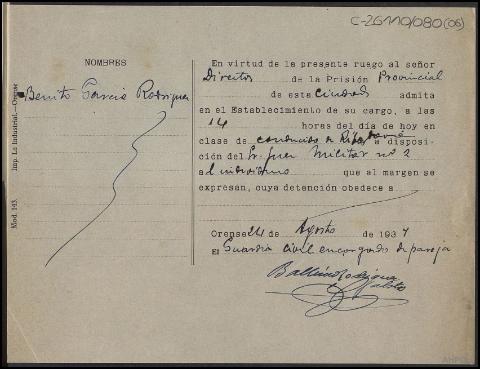 C-26110/080(06)
NOMBRES
Benito García Rodríguez
Mod. 143. Imp. La Industrial.—Orense
En virtud de la presente ruego al señor
Director de la Prisión Provincial
de esta Ciudad admita
en el Establecimiento de su cargo, a las
14 horas del día de hoy en
clase de conducido de a disposi-
ción del Sr. Juez Militar nº 2
al individuo que al margen se
expresan, cuya detención obedece a
Orense 21 Agosto de 1937
El Guardia Civil encargado de pareja